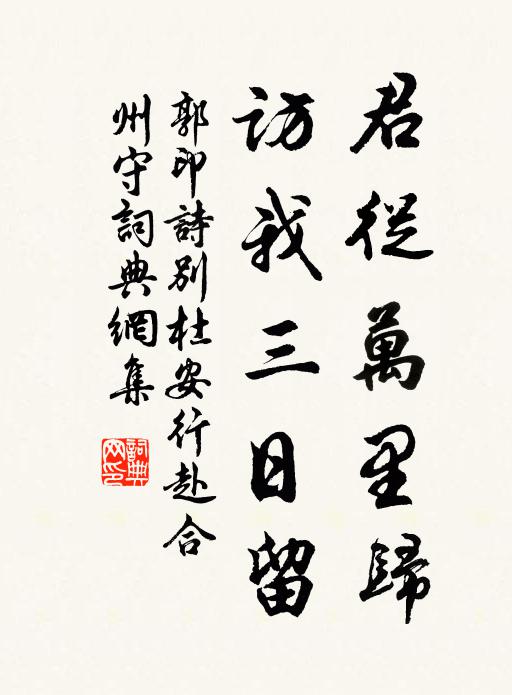 君從萬里歸
訪我三日留
郭印詩別杜安行赴合
州守詞典網集
詞典
網印